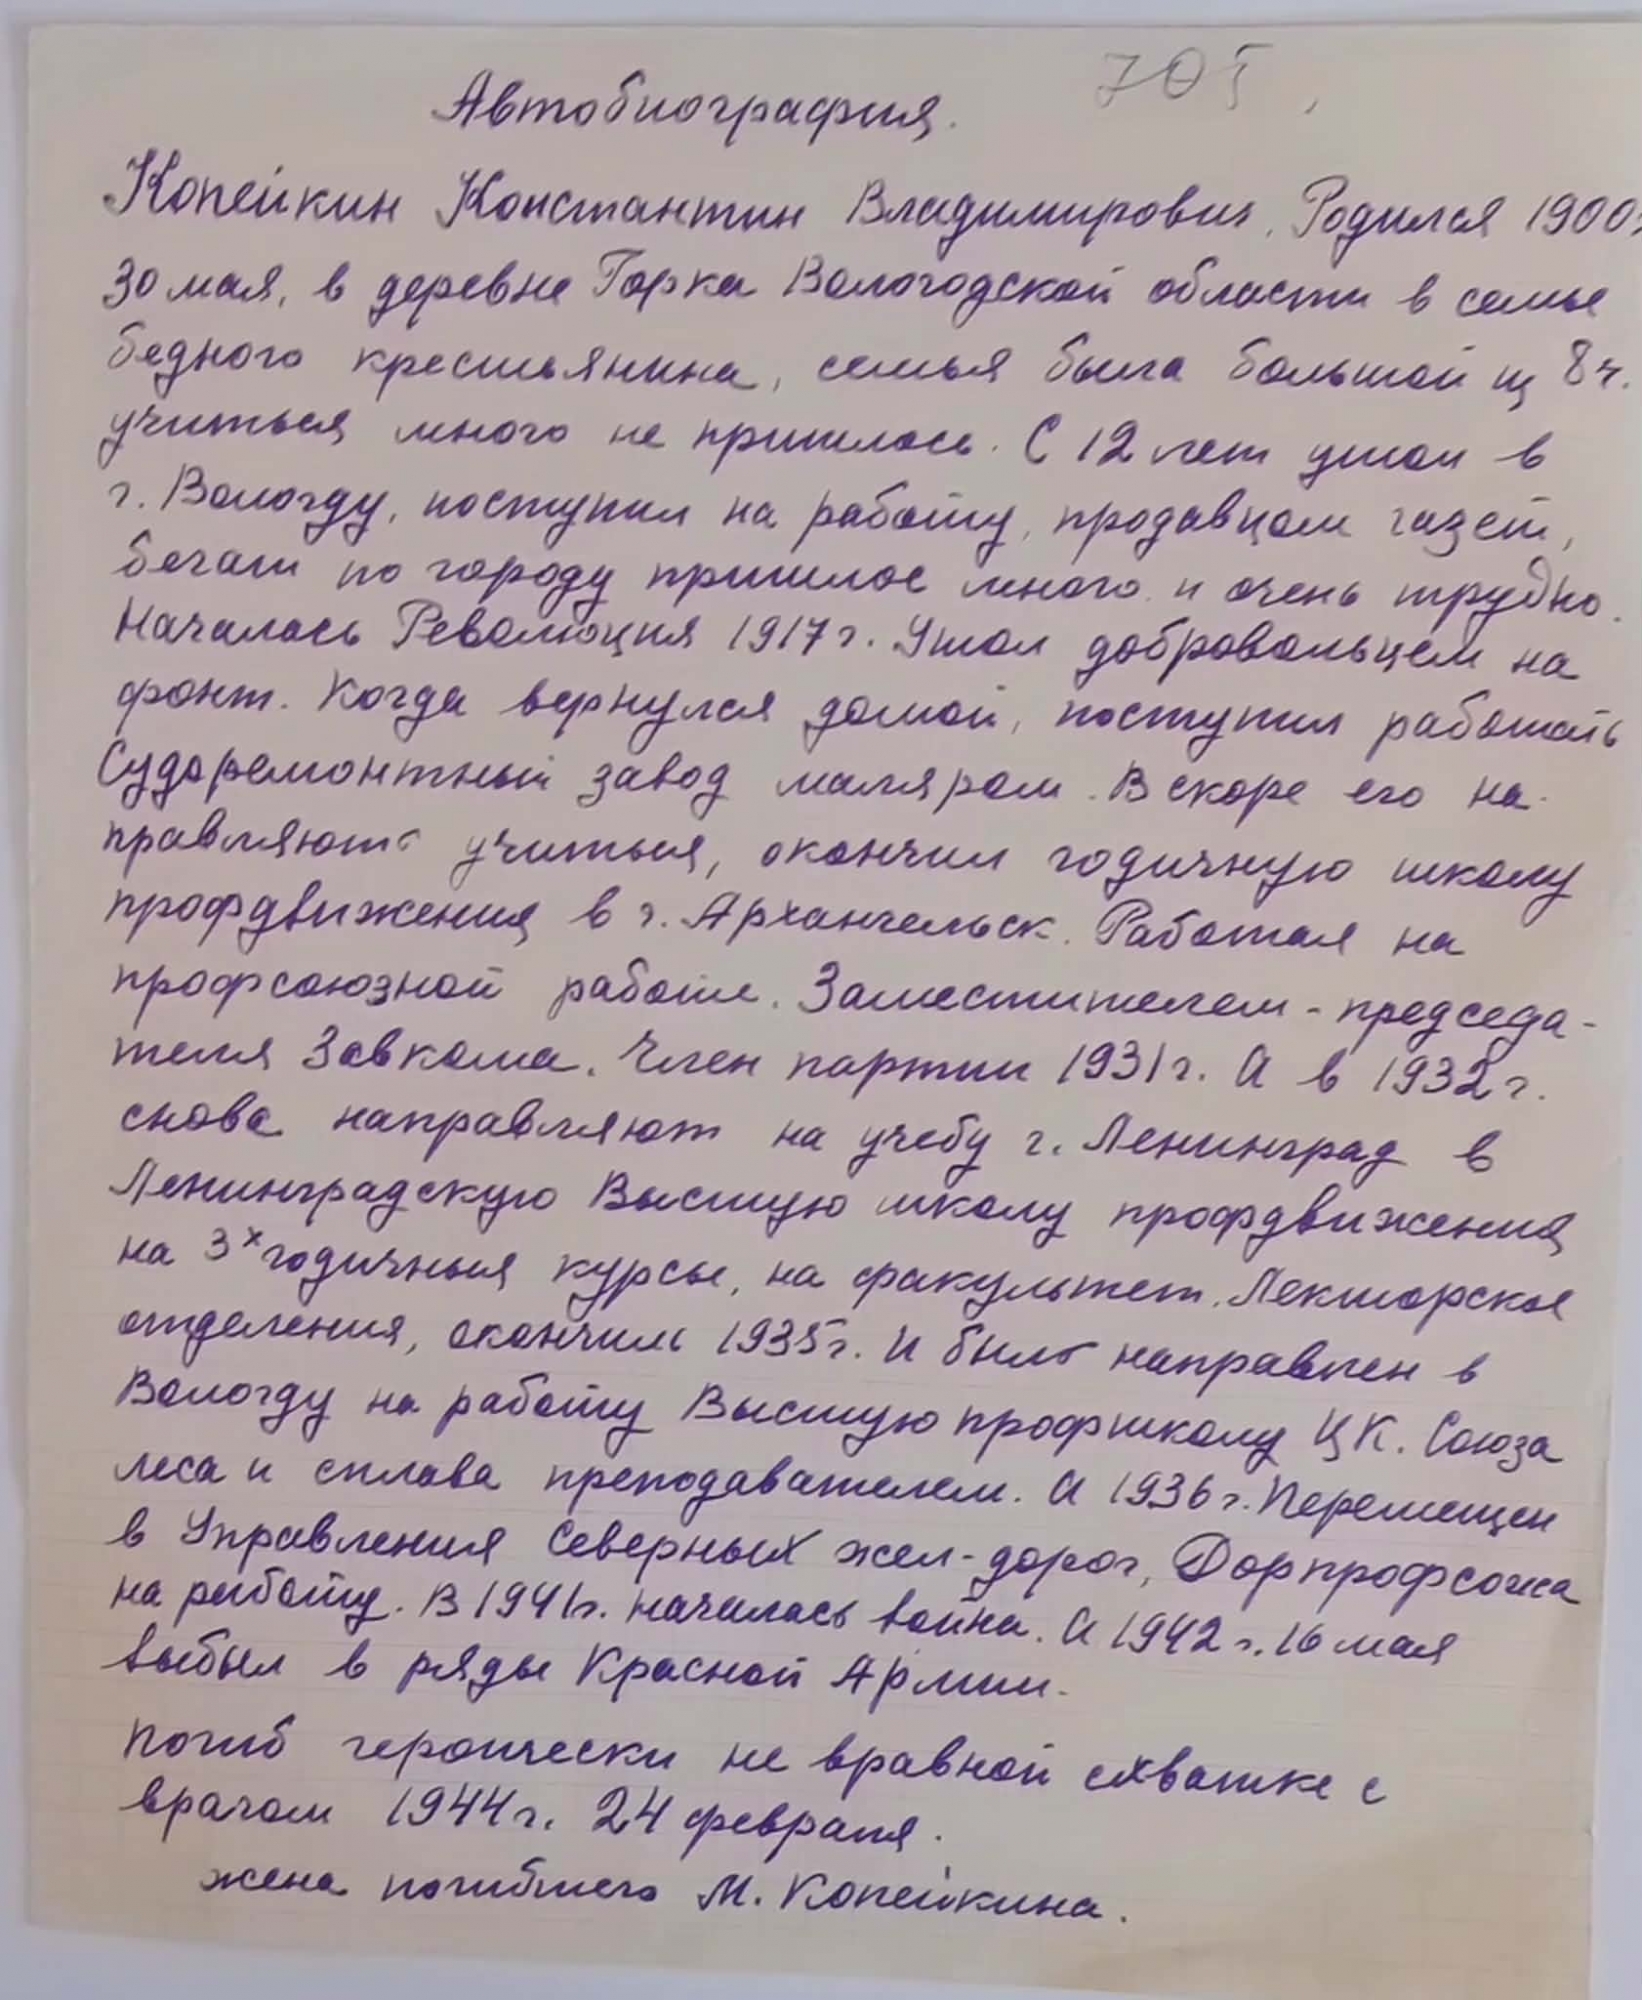 705
Автобиография.
Копейкин Константин Владимирович. Родился 1900г
30 мая, в деревне Горка Вологодской области в семье
бедного крестьянина, семья была большой из 8 ч.
учиться много не пришлось. С 12 лет ушол в
г. Вологду, поступил на работу, продавцом газет,
бегат по городу пришлос много и очень трудно.
Началась Революция 1917 г. Ушол добровольцем на
фонт. Когда вернулся домой, поступил работать
Судоремонтный завод маляром. Вскоре его на-
правляют учиться, окончил годичную школу
профдвижения в г. Архангельск. Работал на
профсоюзной работе. Заместителем - председа-
теля Завкома. Член партии 1931 г. А в 1932 г.
снова направляют на учебу г. Ленинград в
Ленинградскую Высшую школу профдвижения
на 3х годичныя курсы, на факультет. Лекторское
отделения, окончил 1935 г. и был направлен в
Вологду на работу Высшую профшколу ЦК. Союза
леса и сплава преподавателем. А 1936 г. Перемещен
в Управления Северных жел-дорог, Дорпрофсожа
на работу. В 1941 г. началась война. А 1942 г. 16 мая
выбыл в ряды Красной Армии.
Погиб героически не вравной схватке с
врагом 1944 г. 24 февраля.
жена погибшего М. Копейкина.